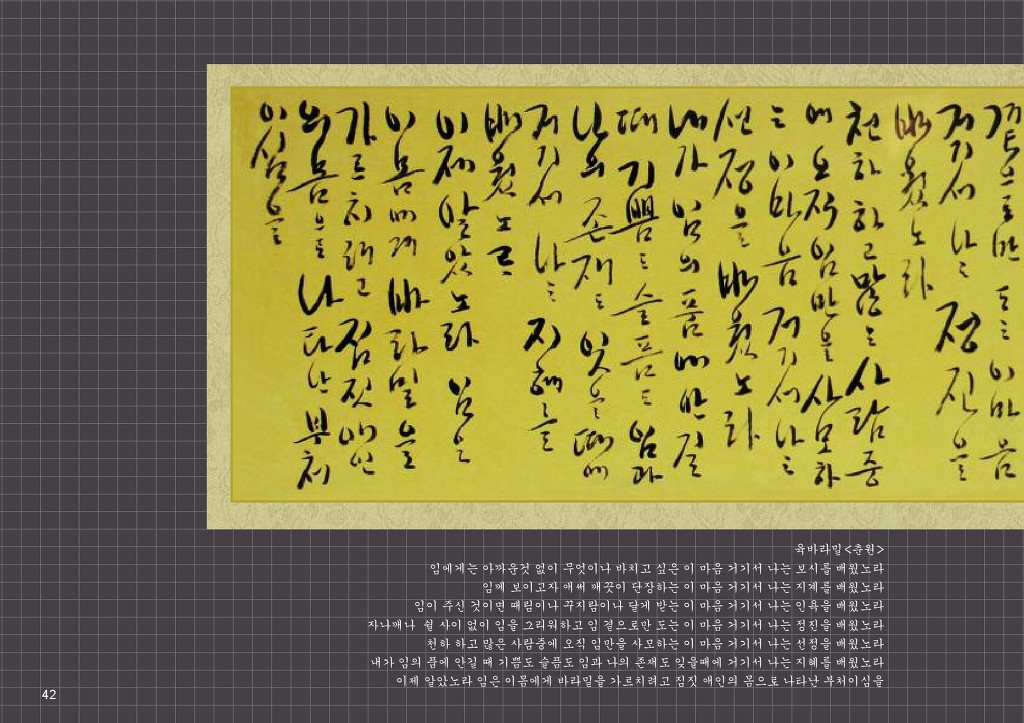 곁으로만 도는 이 마음
거기서 나는 정진을
배웠노라
천하 하고 많은 사람중
에 오직 임만을 사모하
는 이 마음 거기서 나는
선정을 배웠노라
내가 임의 품에 안길
때 기쁨도 슬픔도 임과
나의 존재도 잊을때에
거기서 나는 지혜를
배웠노라
이제 알았노라 임은
이몸에게 바라밀을
가르치려고 짐짓 애인
의 몸으로 나타난 부처
이심을
육바라밀<춘원>
임에게는 아까운것 없이 무엇이나 바치고 싶은 이 마음 거기서 나는 보시를 배웠노라
임께 보이고자 애써 깨끗이 단장하는 이 마음 거기서 나는 지계를 배웠노라
임이 주신 것이면 때림이나 꾸지람이나 달게 받는 이 마음 거기서 나는 인욕을 배웠노라
자나깨나 쉴 사이 없이 임을 그리워하고 임 곁으로만 도는 이 마음 거기서 나는 정진을 배웠노라
천하 하고 많은 사람중에 오직 임만을 사모하는 이 마음 거기서 나는 선정을 배웠노라
내가 임의 품에 안길 때 기쁨도 슬픔도 임과 나의 존재도 잊을때에 거기서 나는 지혜를 배웠노라
이제 알았노라 임은 이몸에게 바라밀을 가르치려고 짐짓 애인의 몸으로 나타난 부처이심을
42